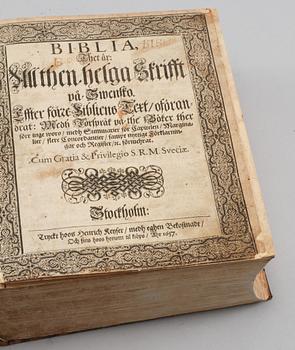 BIBLIA,
Thet är:
All then helga Skrifft
på Swensko.
Efter förre Bibliens Text, oföran-
drat: Medh Förspråk på the Böker ther
före inge woro / medh Summarier för Capitelen / Margina-
lier / flere Concordantier / sampt nyttige Förklarnin-
gar och Register / rc. förmehrat.
Cum Gratia & Privilegio S. R. M. Sveciæ.
Stockholm:
Tryckt hoos Henrich Keyser / medh eghen Bekostnadt /
Och fins hoos honom til köps / Åhr 1657.